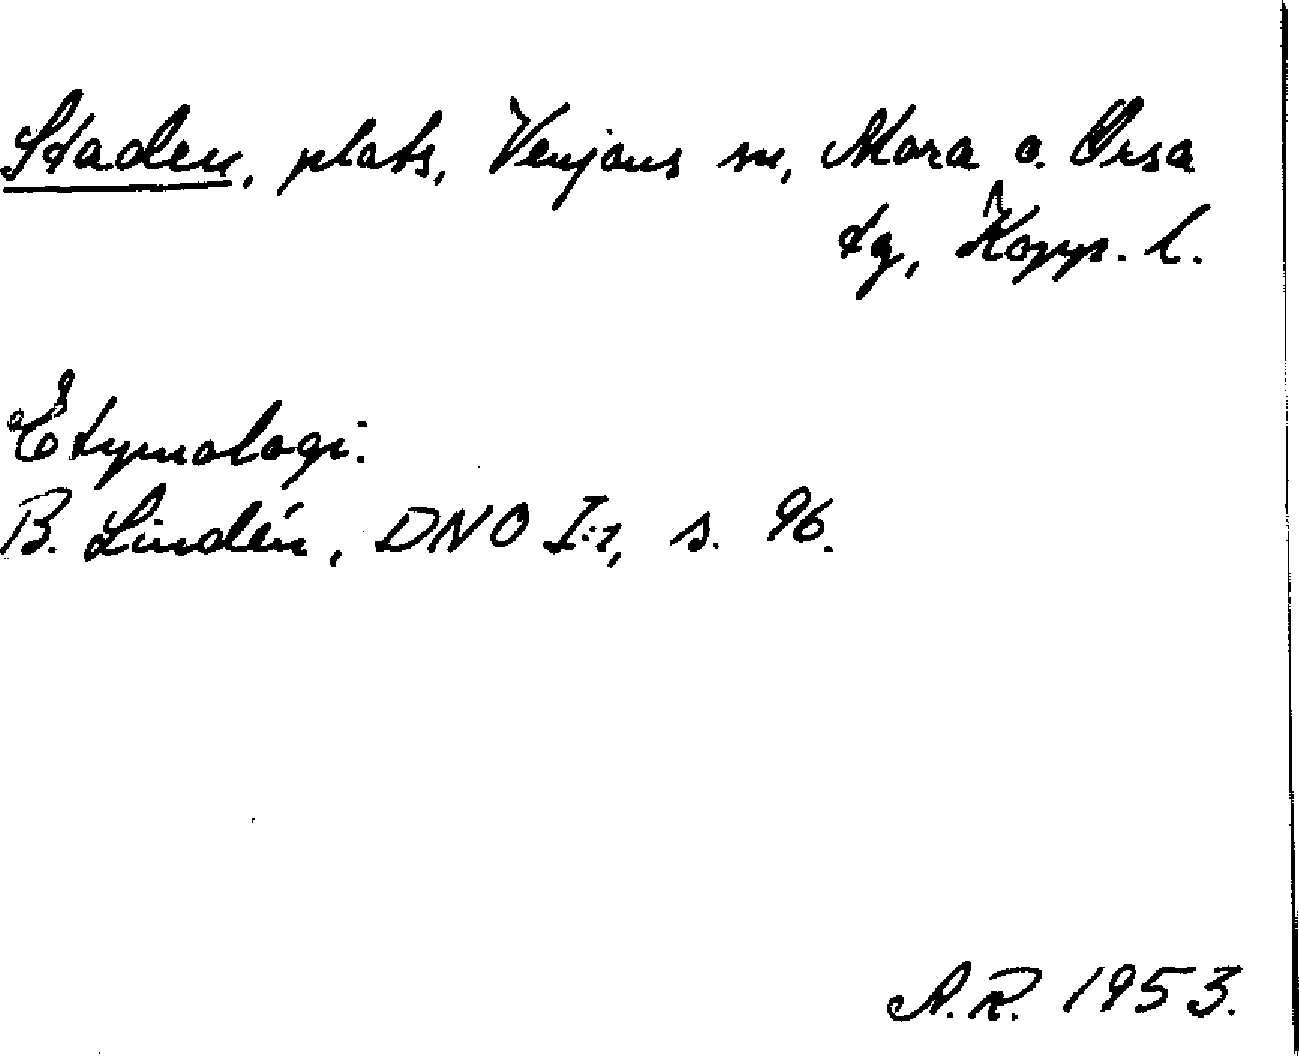 Staden, plats, Venjans sn, Mora o. Orsa
tg, Kopp. l.
Etymologi:
B. Lindén, DNO I:1, s. 96.
A.R. 1953.